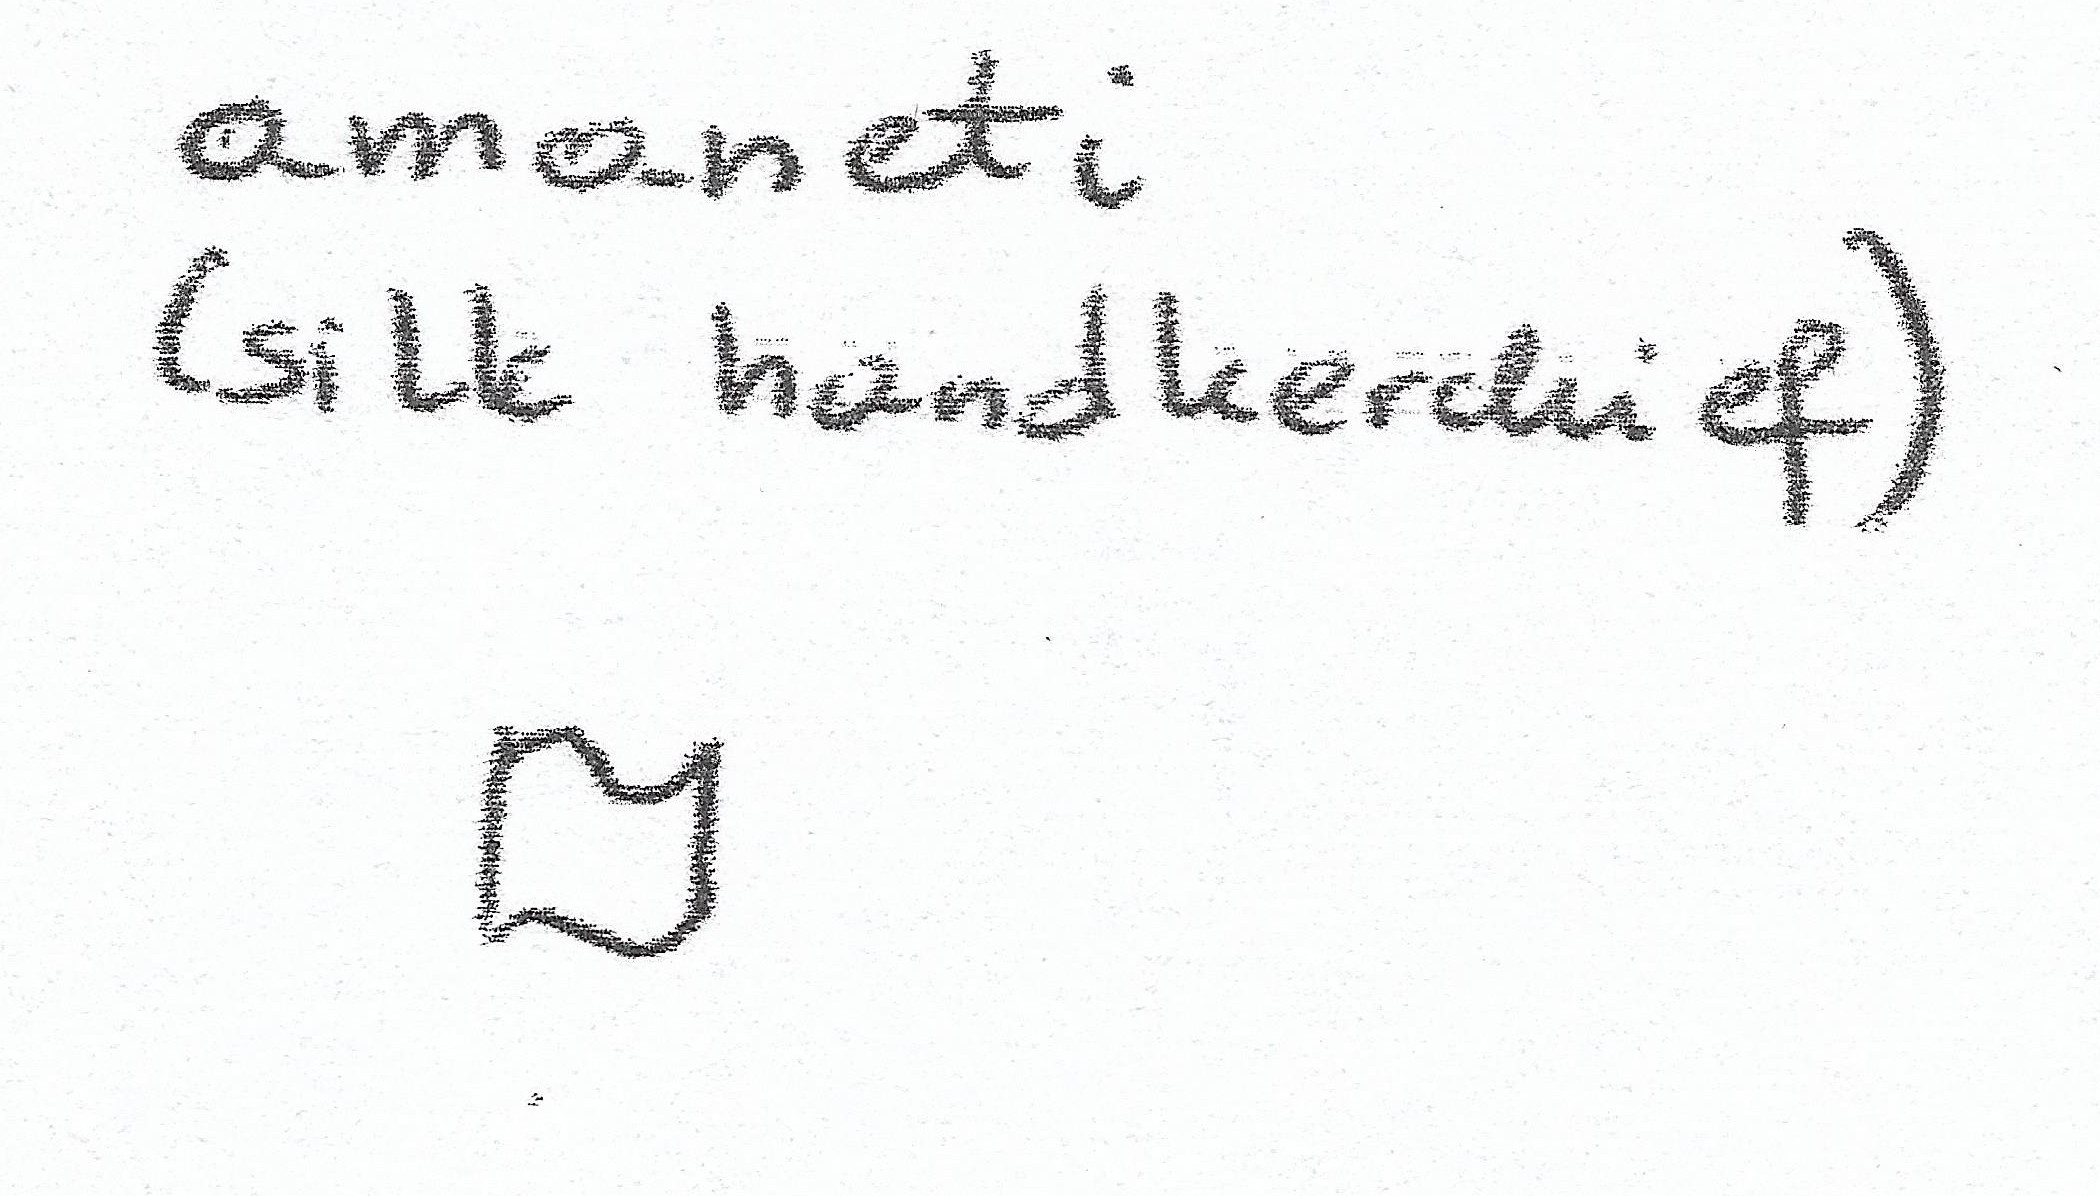 amaneti
(silk handkerchief)